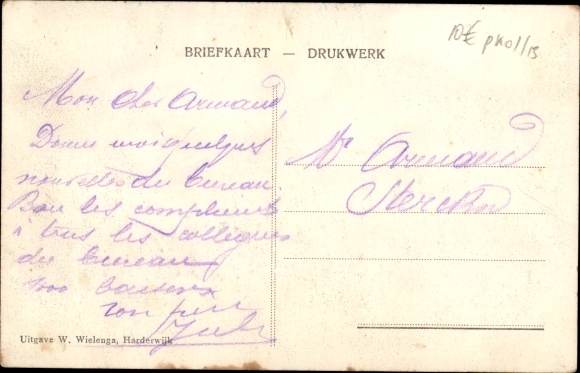 BRIEFKAART — DRUKWERK
10€
Mon cher Armand,
Donne moi quelques
nouvelles du bureau.
Bon les compliments
à tous les collègues
du bureau
100 baisers
ton
Mr Armand
Sterckx
Uitgave W. Wielenga, Harderwijk